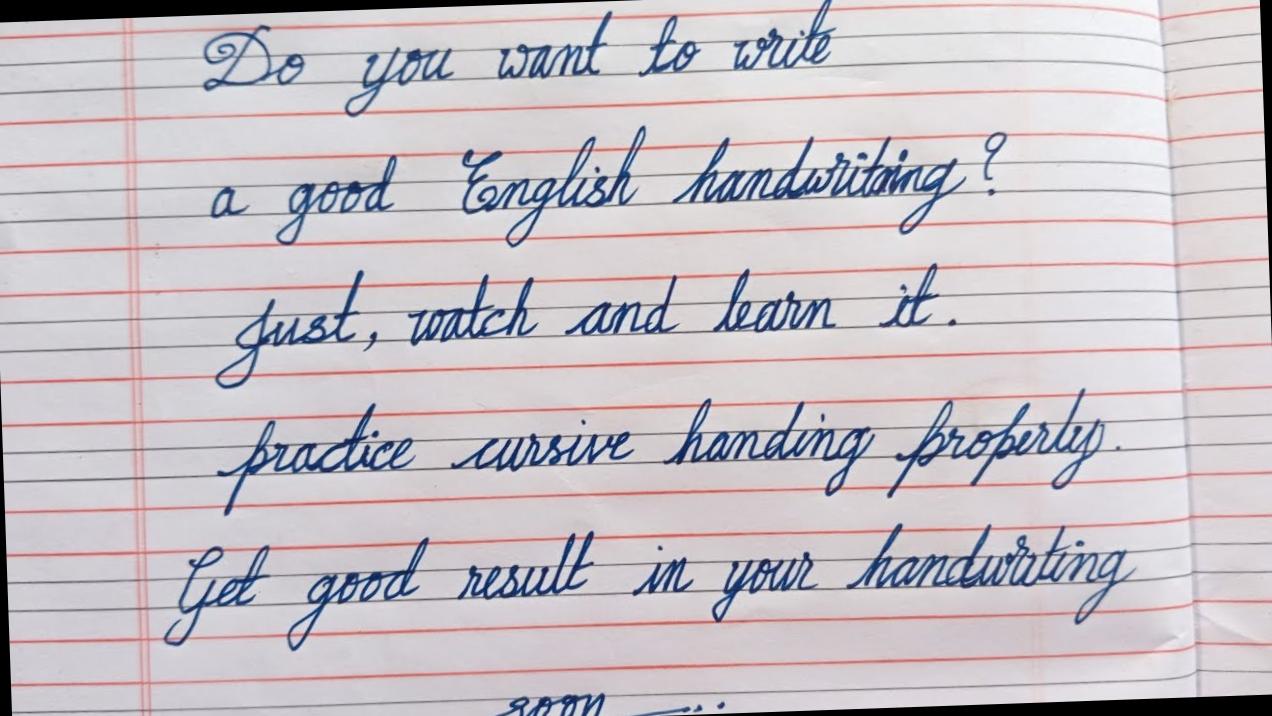 Do you want to write
a good English handwriting?
Just, watch and learn it.
practice cursive handing properly.
Get good result in your handwriting
soon ...